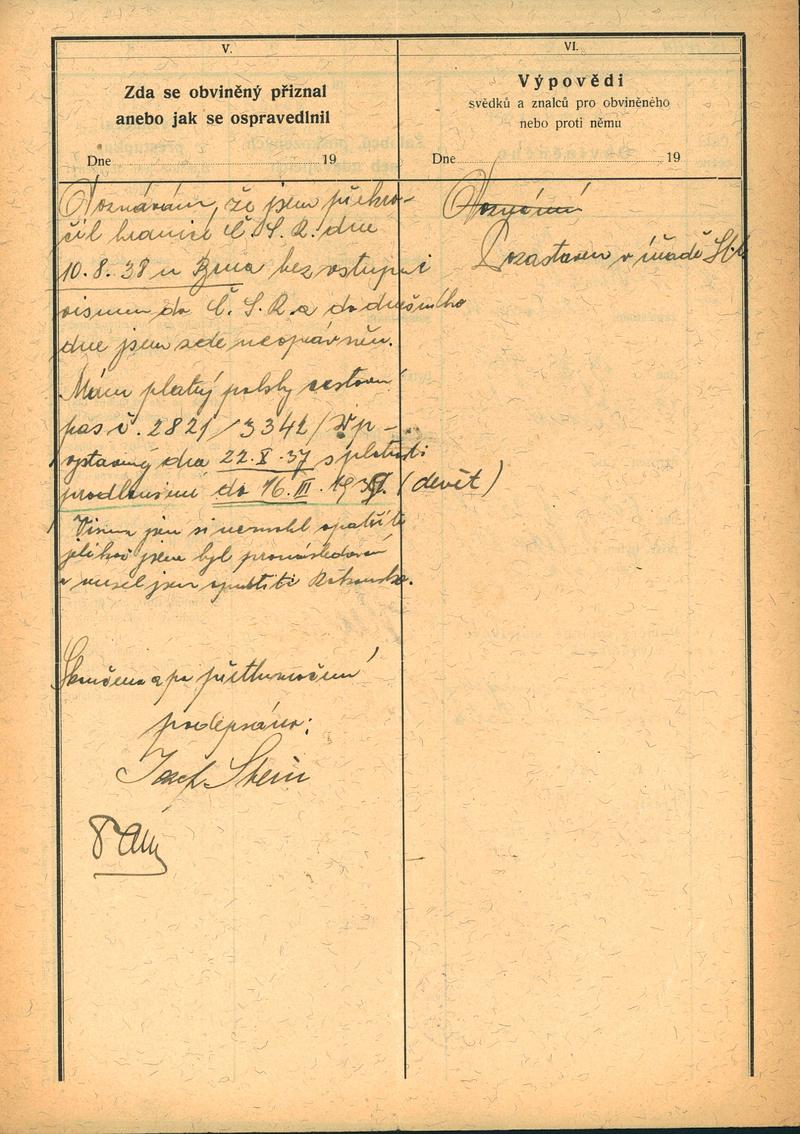 V.
Zda se obviněný přiznal
anebo jak se ospravedlnil
Dne 19
Doznávám, že jsem překro-
čil hranici Č.S.R. dne
10.8.38 u Brna bez vstupní
visum do Č.S.R. a do dnešního
dne jsem zde neoprávněn.
Mám platný polský cestovní
pas č. 2821/3342/
vystavený dne 22.X.37 s platností
prodloužení do 16.III.1939. (devět)
Visum jsem si nemohl opatřiti
jelikož jsem byl pronásledován
a musel jsem opustiti Rakousko.
Skončeno a po přetlumočení
podepsáno:
Josef Stein
VI.
Výpovědi
svědků a znalců pro obviněného
nebo proti němu
Dne 19
Pozastaven v úřadě